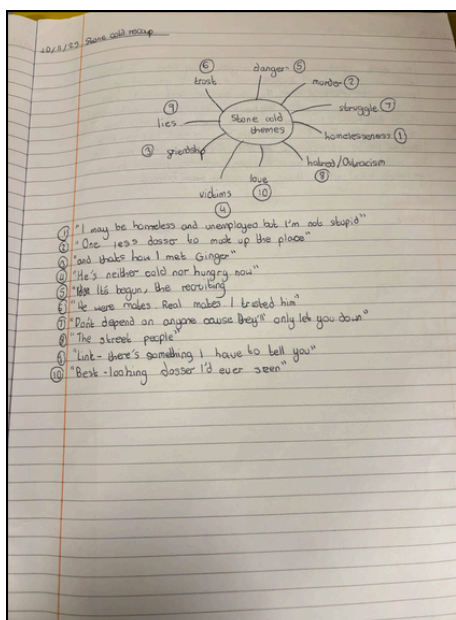 10/11/22 Stone cold recap
⑥
trust
danger - ⑤
murder - ②
⑨
lies
Stone cold
themes
struggle - ⑦
homelessness ①
③ friendship
hatred/Ostracism
⑧
love
⑩
victims
④
① "I may be homeless and unemployed but I'm not stupid"
② "One less dosser to muck up the place"
③ "and thats how I met Ginger"
④ "He's neither cold nor hungry now"
⑤ It's begun, the recruiting
⑥ "We were mates. Real mates. I trusted him"
⑦ "Don't depend on anyone cause they'll only let you down"
⑧ "The street people"
⑨ "Link - there's something I have to tell you"
⑩ "Best-looking dosser I'd ever seen"